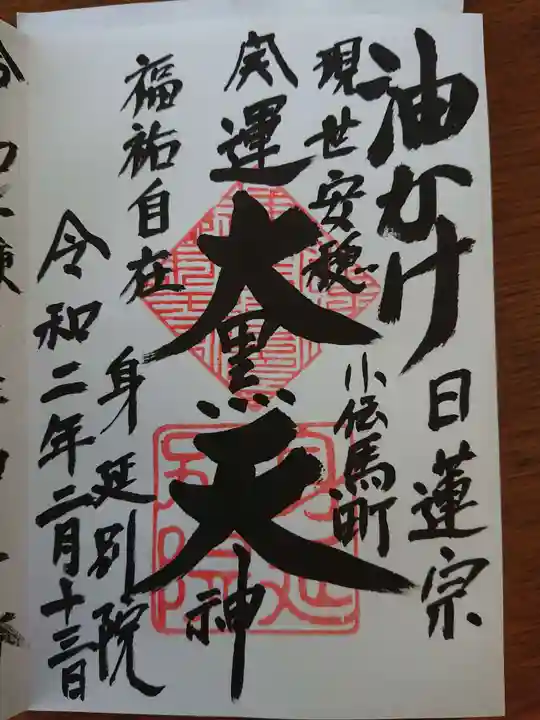 油かけ
日蓮宗
現世安穏
小伝馬町
開運大黒天神
福祐自在
身延別院
令和二年二月十三日